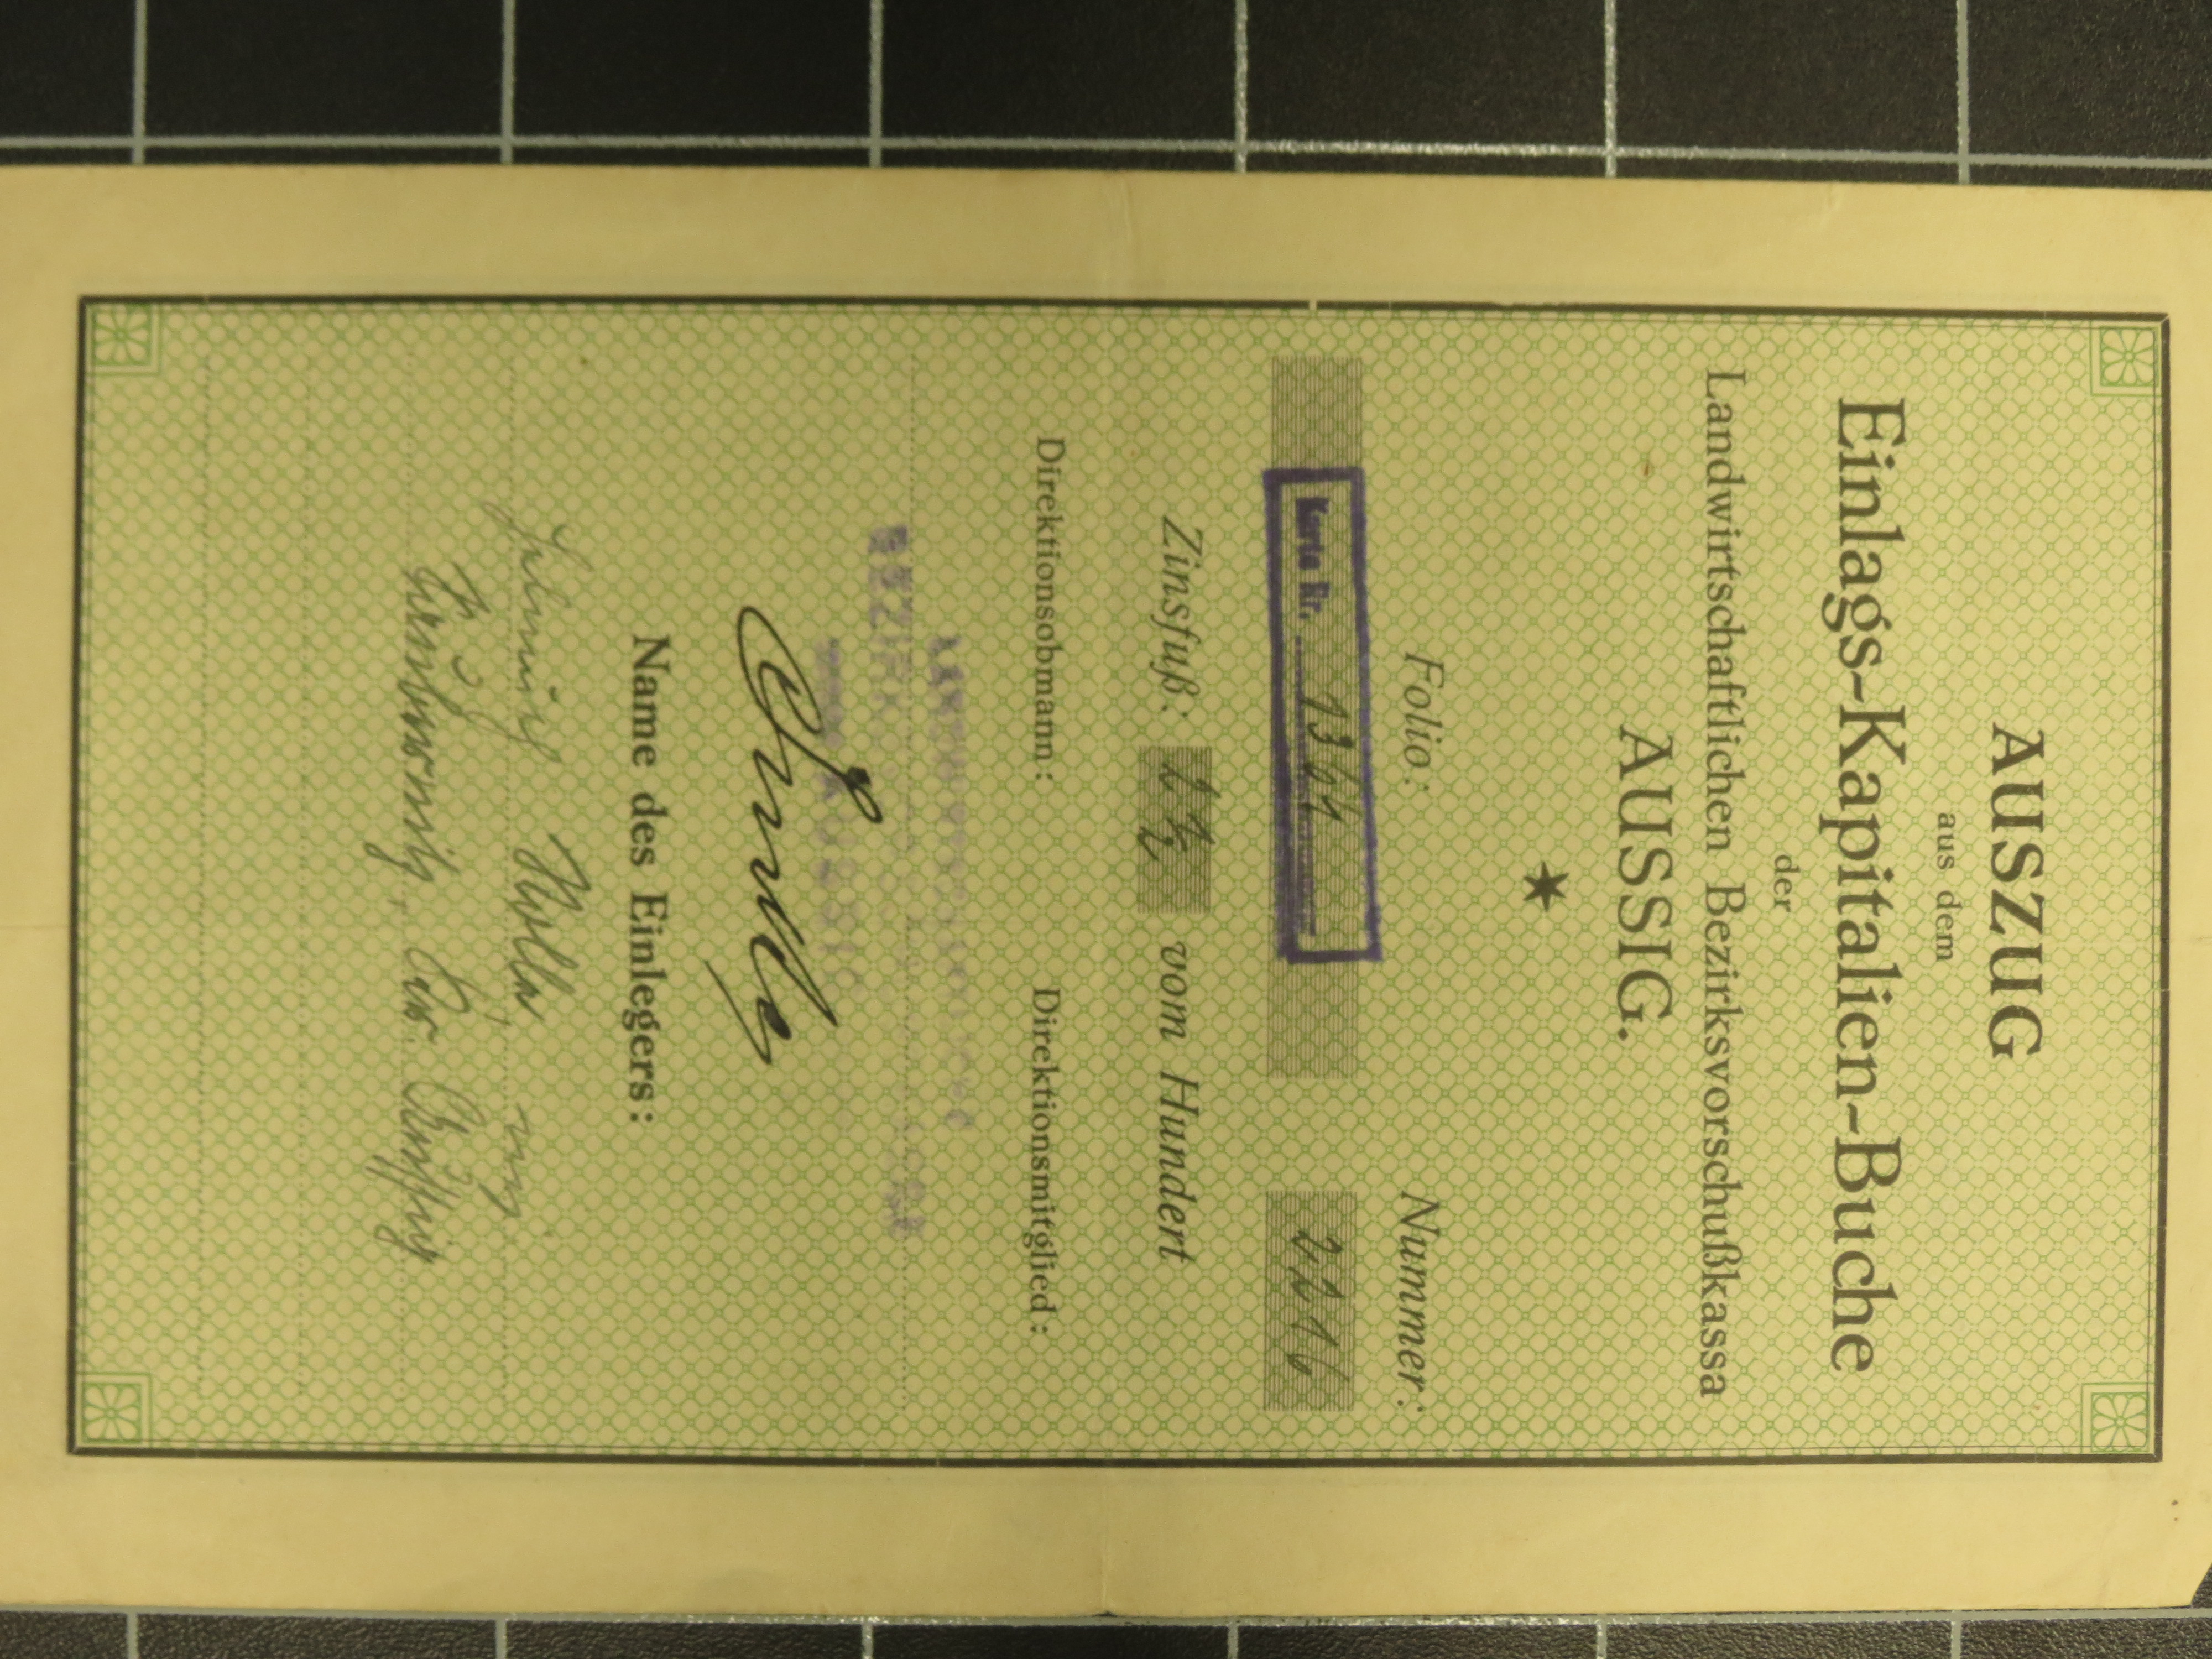 AUSZUG
aus dem
Einlags-Kapitalien-Buche
der
Landwirtschaftlichen Bezirksvorschußkassa
AUSSIG.
Folio: Nummer:
Karte Nr. 1364 2216
Zinsfuß: 2 1/2 vom Hundert
Direktionsobmann: Direktionsmitglied:
LANDWIRTSCHAFTLICHE
AUSSIG
Name des Einlegers:
Helmuth Nolle, mj.
Saubernitz, Kr. Aussig